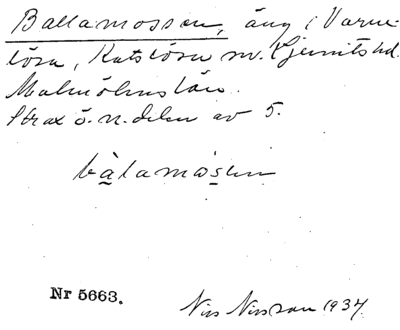 Ballamossen, äng i Varne-
lösa, Katslösa sn. Ljunits hd.
Malmöhus län.
Strax ö. n. delen av 5.
bàlamosen
Nr 5663.
Nils Nilsson 1937.